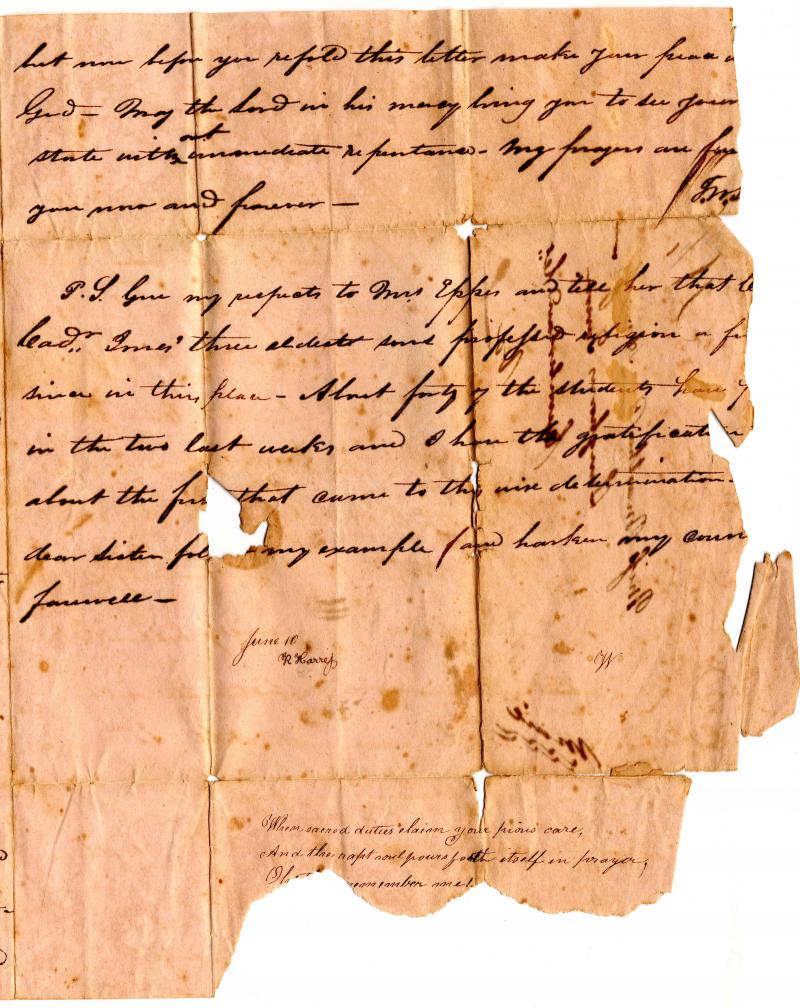 but now before you refold this letter make your peace
God – May the Lord in his mercy bring you to see your
state with out immediate repentance – My prayers are for
you now and forever –
P.S. Give my respects to Mrs Eppes and tell her that
three eldest sons professed religion a
since in this place – About forty of the students have
in the two last weeks and I have the gratification
about the first that came to this wise determination –
dear sister my example and harken my coun
farewell –
June 10
R Harress
W
When sacred duties claim your pious care,
And the rapt soul pours forth itself in prayer,
remember me!